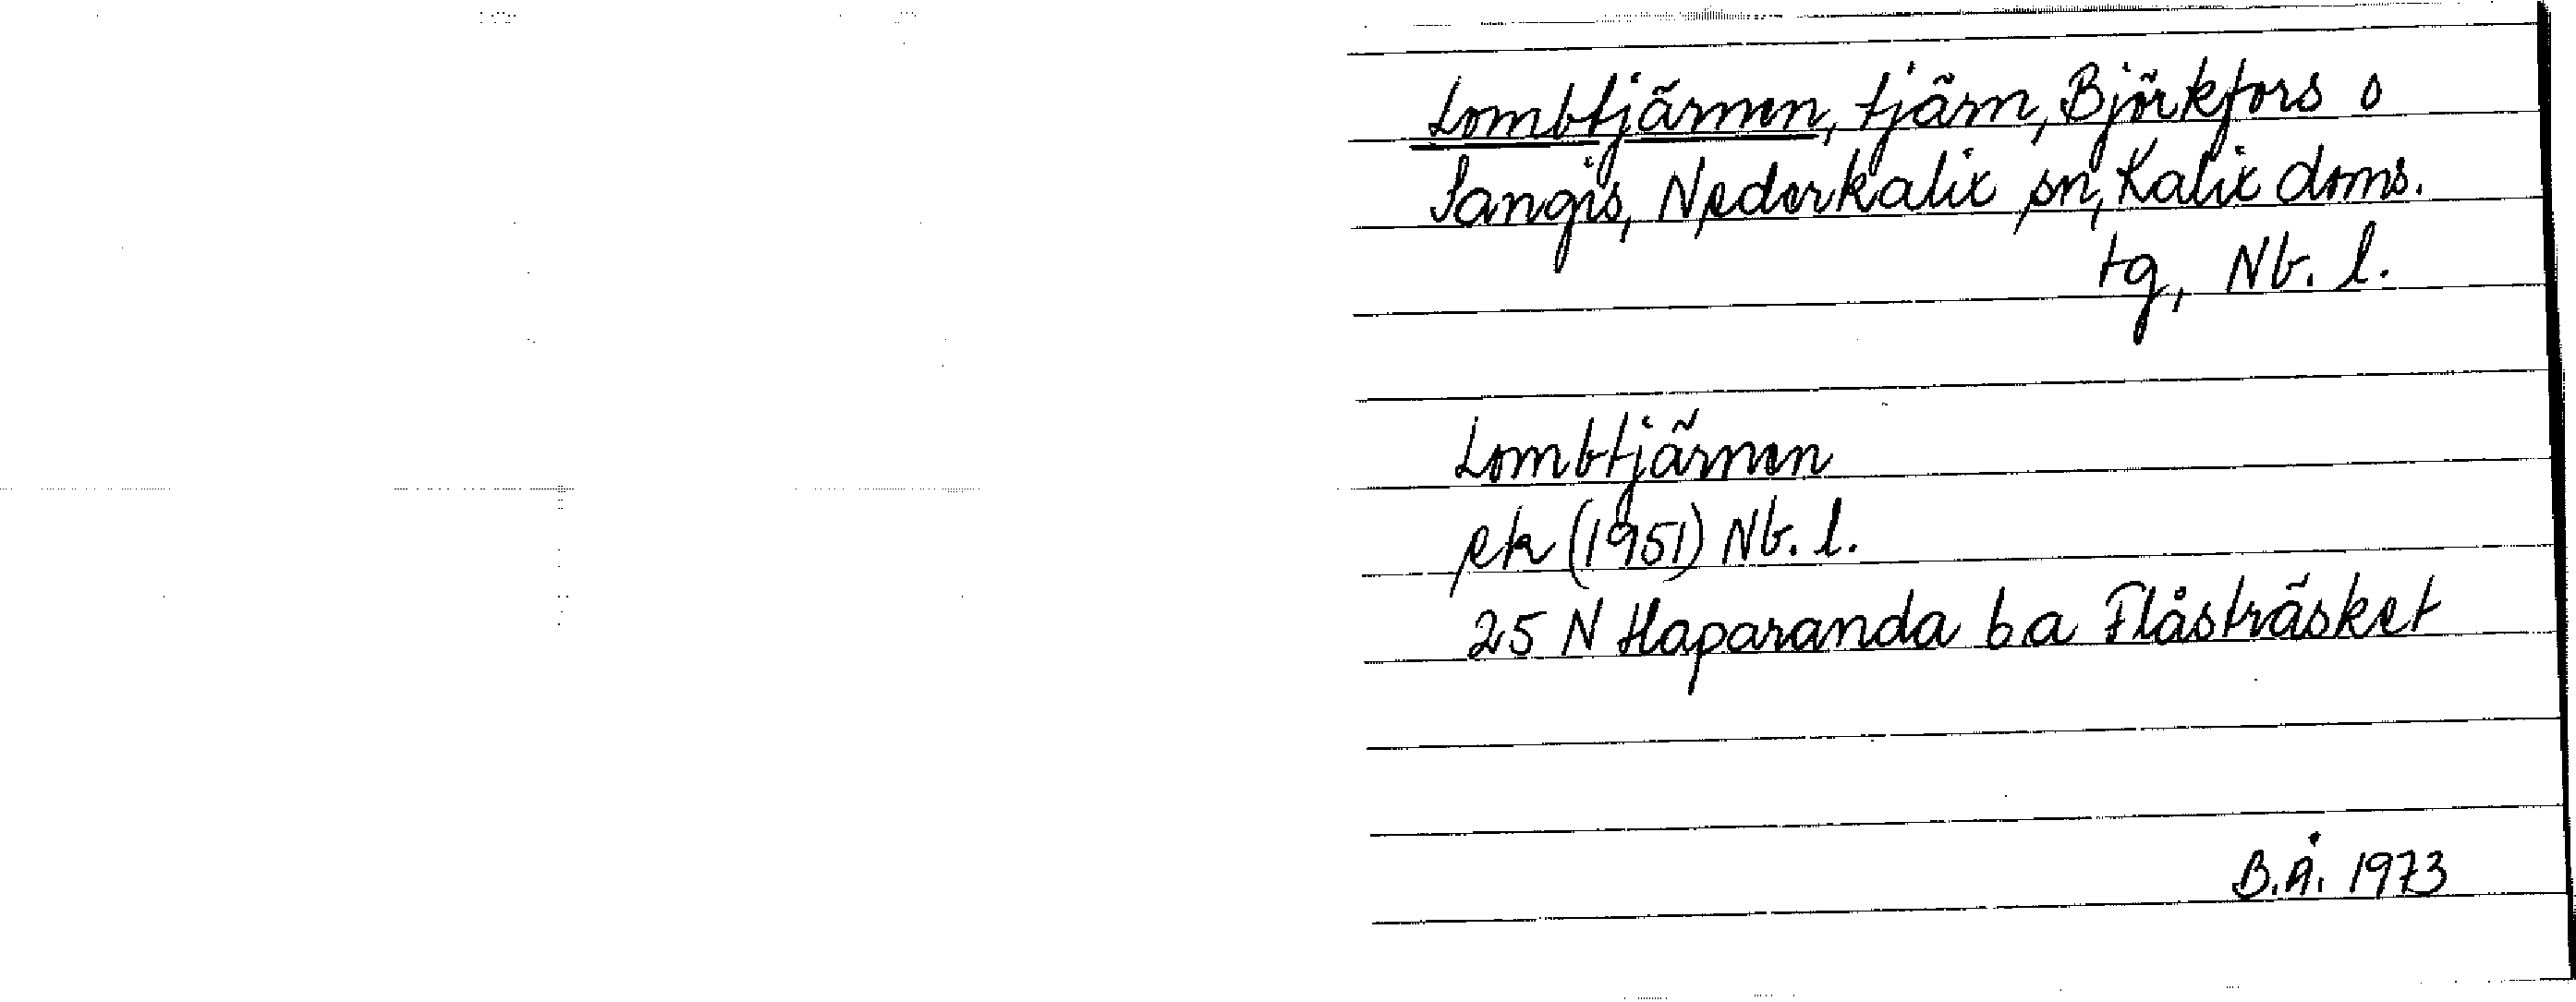 Lombtjärnen, tjärn, Björkfors o
Sangis, Nederkalix sn, Kalix doms.
tg, Nb. l.
Lombtjärnen
ek (1951) Nb. l.
25 N Haparanda b a Flåsträsket
B.Å. 1973